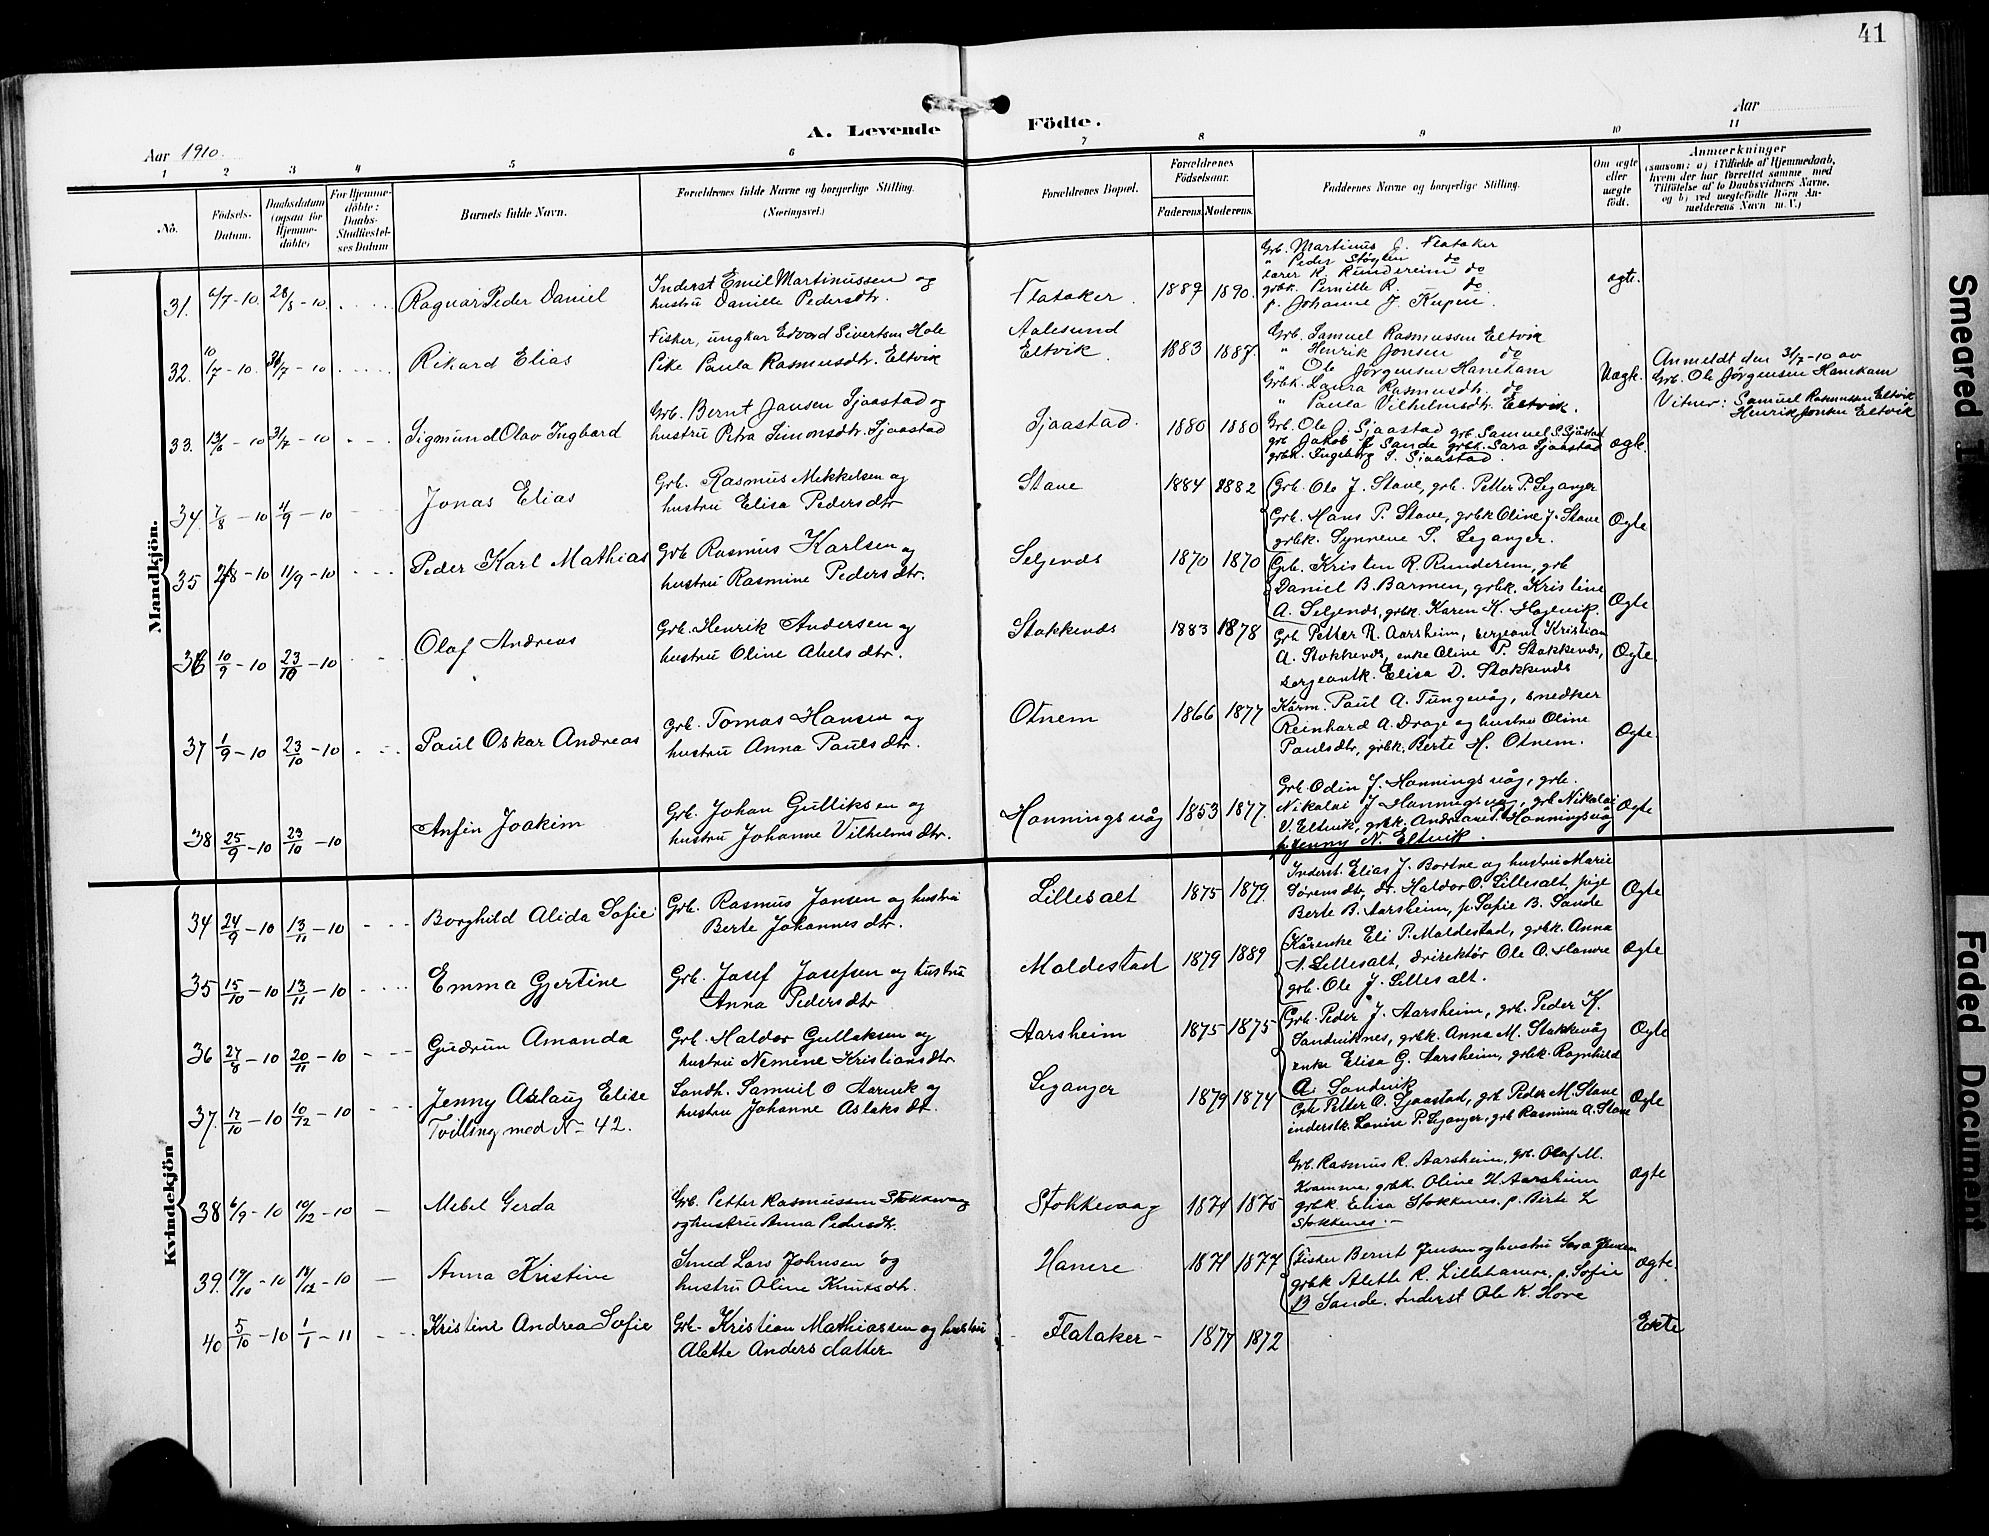 41
A. Levende Födte.
Aar 1910.
Aar
1 2 3 4 5 6 7 8 9 10 11
Nô. Födsels-Datum. Daabsdatum (ogsaa for Hjemme-döbte) For Hjemme-döbte: Daabs-Stadfæstel-ses Datum Barnets fulde Navn. Forældrenes fulde Navne og borgerlige Stilling. (Næringsvei.) Forældrenes Bopæl. Forældrenes Födselsaar. Faderens. Moderens. Faddernes Navne og borgerlige Stilling. Om ægte eller uægte födt. Anmærkninger (saasom: a) i Tilfælde af Hjemmedaab, hvem der har forrettet samme, med Tilföielse af to Daabsvidners Navne. og b) ved uægtefödte Börn An-melderens Navn m. V.)
Mandkjön.
31. 6/7-10. 28/8-10. Ragnar Peder Daniel
Inderst Emil Martinussen og
hustru Danille Pedersdtr.
Flataker. 1889 1890.
Grb. Martinus J. Flataker
" Peder Støylen do
Lærer R. Rundereim do
grbk. Pernille R. do
p. Johanne J.
ægte.
32. 10/7-10. 31/7-10 Rikard Elias
Fisker, ungkar Edvard Sivertsen Hole
Pike Paula Rasmusdtr. Eltvik
Aalesund
Eltvik. 1883 1887.
Grb. Samuel Rasmussen Eltvik
" Henrik Jonsen do
" Ole Jørgensen Hanekam
Grbk. Laura Rasmusdtr. do
" Paula Vilhelmsdtr. Eltvik.
Uægt.
Anmeldt den 31/7-10 av
Grb. Ole Jørgensen Hanekam
Vitner: Samuel Rasmussen Eltvik
Henrik Jonsen Eltvik
33. 13/6-10 31/7-10 Sigmund Olav Ingbard
Grb. Bernt Jansen Sjaastad og
hustru Petra Simonsdtr. Sjaastad
Sjaastad. 1880 1880
Grb. Ole J. Sjaastad grb. Samuel S. Sjåstad
grb Jakob P. Sande grbk. Sara Sjaastad
grbk. Ingeborg S. Sjaastad.
ægt.
34 7/8-10 11/9-10 Jonas Elias
Grb. Rasmus Mekkelsen og
hustru Elisa Pedersdtr
Stave 1884 1882
Grb. Ole J. Stave, grb. Petter P. Leganger
Grb. Hans P. Stave, grbk Oline J. Stave
grbk. Synneve S. Leganger.
Ægte
35 2/8-10 11/9-10 Peder Karl Mathias
Grb Rasmus Karlsen og
hustru Rasmine Pedersdtr.
Seljenes 1870 1870
Grb. Kristen R. Runderem, grb
Daniel B. Barmen, grbk. Kristine
A. Seljenes, grbk. Karen K. Hagevik.
Ægte
36 10/9-10 23/10-10 Olaf Andreas
Grb. Henrik Andersen og
hustru Oline Abelsdtr.
Stokkenes 1883 1878
Grb Petter R. Aarsheim, sergeant Kristian
A. Stokkenes, enke Oline P. Stokkenes,
sergeantk. Elisa D. Stokkenes
Ægte.
37 1/9-10 23/10-10 Paul Oskar Andreas
Grb. Tomas Hansen og
hustru Anna Paulsdtr.
Otnem 1866 1877
Kårm. Paul A. Tungevåg, snedker
Reinhard A. Drage og hustru Oline
Paulsdtr, grbk. Berte H. Otnem.
Ægte.
38 25/9-10 23/10-10 Anfin Joakim
Grb. Johan Gulliksen og
hustru Johanne Vilhelmsdtr.
Honningsvåg 1853 1877.
Grb. Odin J. Honningsvåg, grb.
Nikolai J. Honningsvåg, grb Nikolai
V. Eltvik, grbk. Andreane Honningsvåg
p. Jenny N. Eltvik.
Ægte
Kvindekjön
34 24/9-10 13/11-10 Borghild Alida Sofie
Grb. Rasmus Jansen og hustru
Berte Johannesdtr.
Lillesalt 1875 1879.
Inderst. Elias J. Bortne og hustru Marie
Sørensdtr, dr. Haldor O. Lillesalt, pige
Berte B. Aarsheim, p. Sofie B. Sande
Ægte
35 15/10-10 13/11-10 Emma Gjertine
Grb. Josef Josefsen og hustru
Anna Pedersdtr
Maldestad 1879 1889
Kårenke Eli P. Maldestad, grbk. Anna
A. Lillesalt, direktør Ole O. Hamre
grb. Ole J. Lillesalt.
Ægte
36 27/8-10 20/11-10 Gudrun Amanda
Grb. Haldor Gullaksen og
hustru Nemine Kristiansdtr
Aarsheim 1875 1875
Grb. Peder J. Aarsheim, grb. Peder K.
Sandviknes, grbk. Anna M. Stokkevåg
enke Elisa G. Aarsheim, grbk. Ragnhild
A. Sandvik
Ægte
37. 12/10-10 10/12-10 Jenny Aslaug Elise
Tvilling med N- 42.
Landh. Samuel O Herink og
hustru Johanne Aslaksdt.
Leganger 1879 1874
Grb Petter O. Sjaastad, grb Peder M. Stave
inderstk. Lovise P. Leganger, grb Rasmine A. Stave
Ægte
38 6/9-10 10/12-10 Mebel Gerda
Grb. Petter Rasmussen Stokkevaag
og hustru Anna Pedersdtr.
Stokkevaag 1874 1875
Grb. Rasmus R. Aarsheim, grb. Olaf M.
Kvamme, grbk Oline H Aarsheim
grbk. Elisa Stokkenes. p. Berte L
Stokkenes.
ægte
39. 19/10-10 18/12-10 Anna Kristine
Smed Lars Johnsen og
hustru Oline Knutsdtr.
Hamre 1871 1877
Fisker Bernt Jensen og hustru Sara Jensen
grbk Alette R. Lillehamre, p. Sofie
B Sande. Inderst Ole K. Hove
ægte.
40 5/10-10 1/1-11 Kristine Andrea Sofie
Grb. Kristian Mathiassen og hustru
Alette Andersdatter
Flataker 1877 1872
Ekte
Smeared
Faded Document